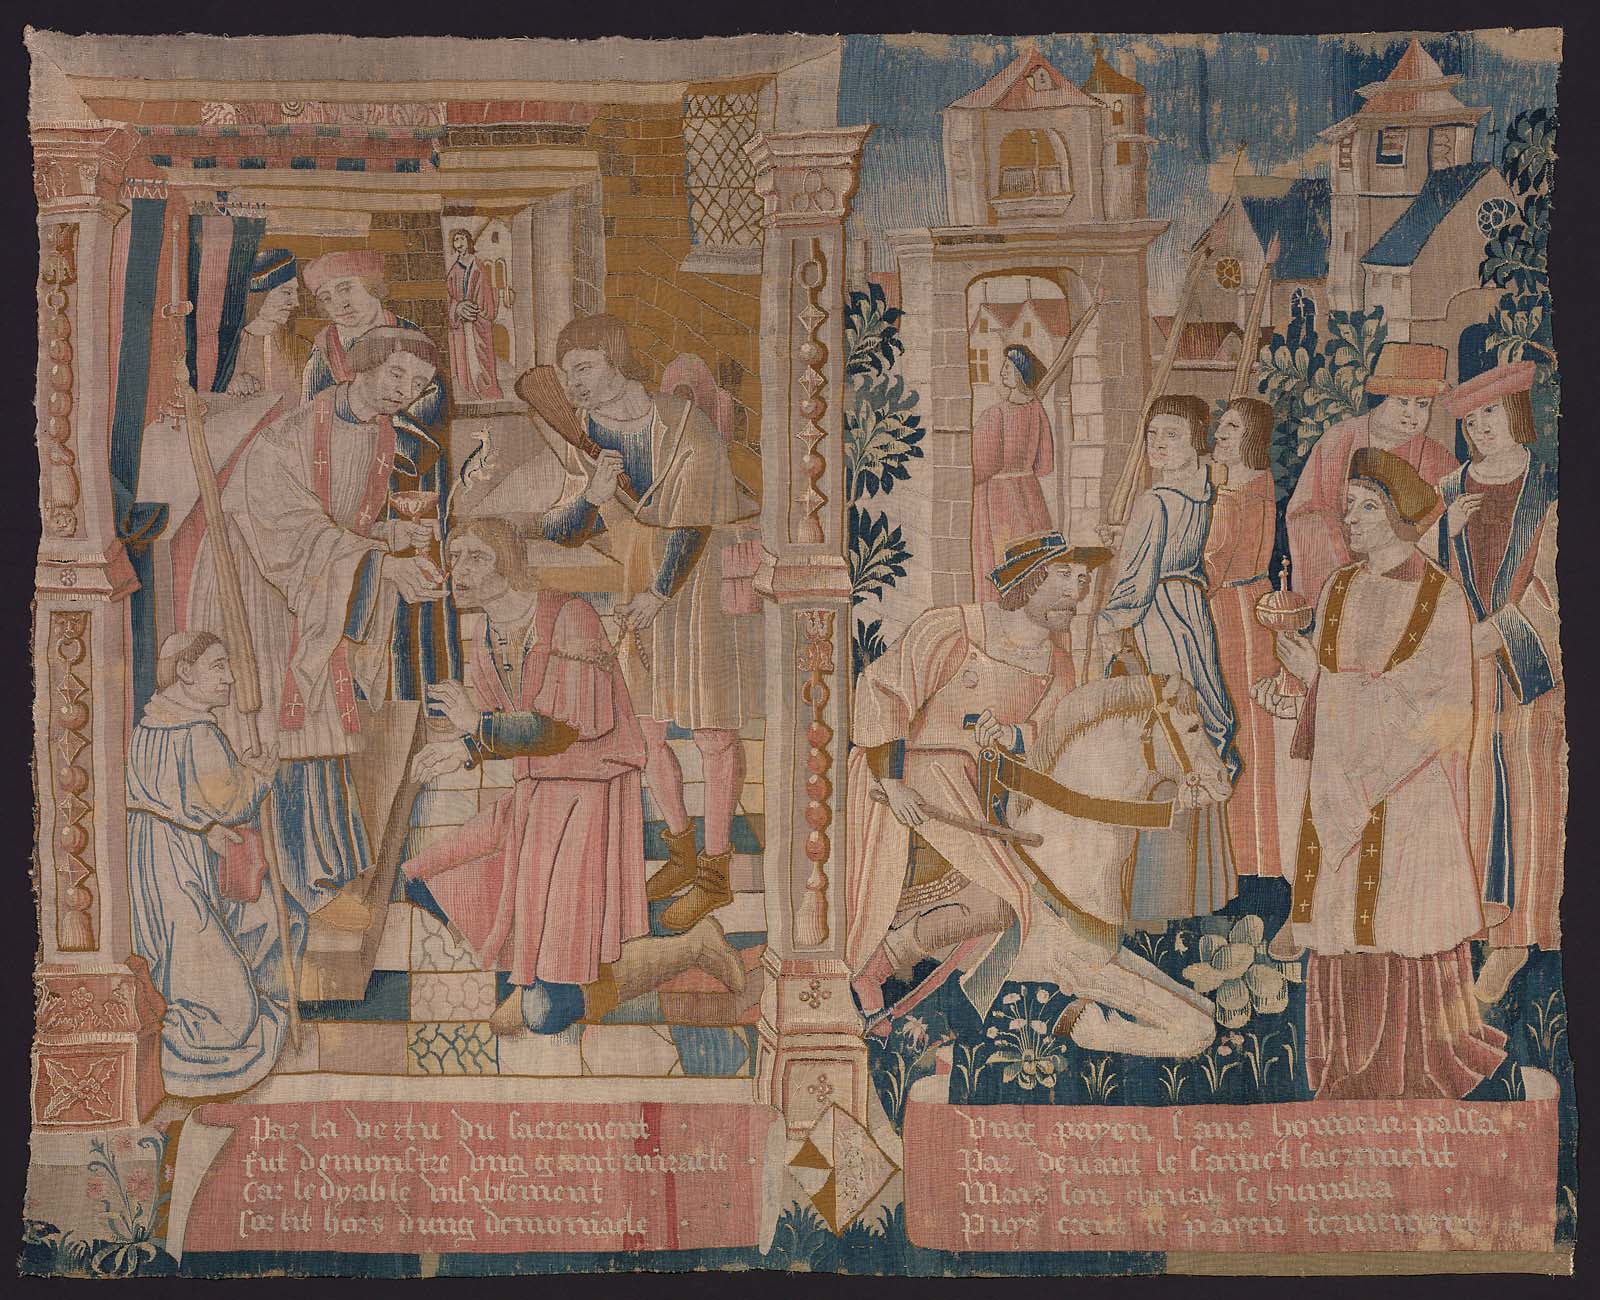 Par la vertu du sacrement
fut demonstre ung grant miracle
Car le dyable visiblement
sortit hors dung demoniacle
Ung payen sans honneur passa
Par devant le sainct sacrement
Mais son cheval se humilia
Puys creut le payen fermement